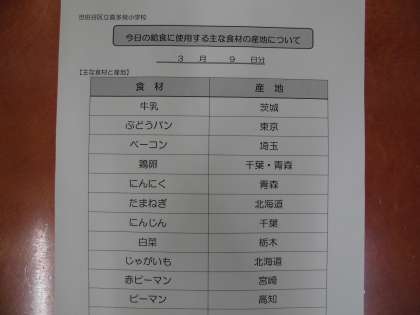 世田谷区立喜多見小学校
今日の給食に使用する主な食材の産地について
3 月 9 日分
【主な食材と産地】
食 材 産 地
牛乳 茨城
ぶどうパン 東京
ベーコン 埼玉
鶏卵 千葉・青森
にんにく 青森
たまねぎ 北海道
にんじん 千葉
白菜 栃木
じゃがいも 北海道
赤ピーマン 宮崎
ピーマン 高知